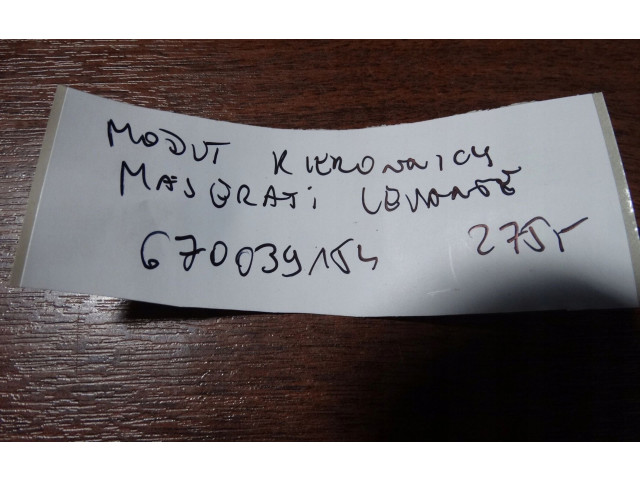 MODUŁ KIEROWNICY
MASERATI LEVANTE
670039154 275,-